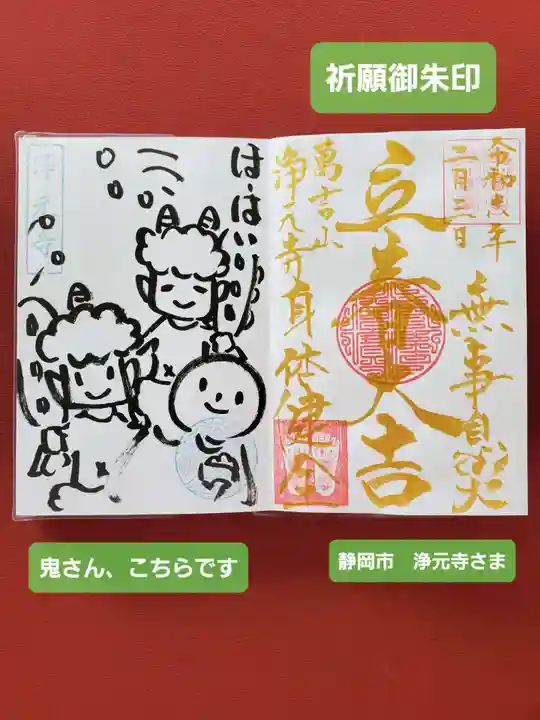 祈願御朱印
令和五年
二月三日
無事息災
立春大吉
身体健全
萬吉山
浄元寺
は・はい
浄元寺
鬼さん、こちらです
静岡市　浄元寺さま